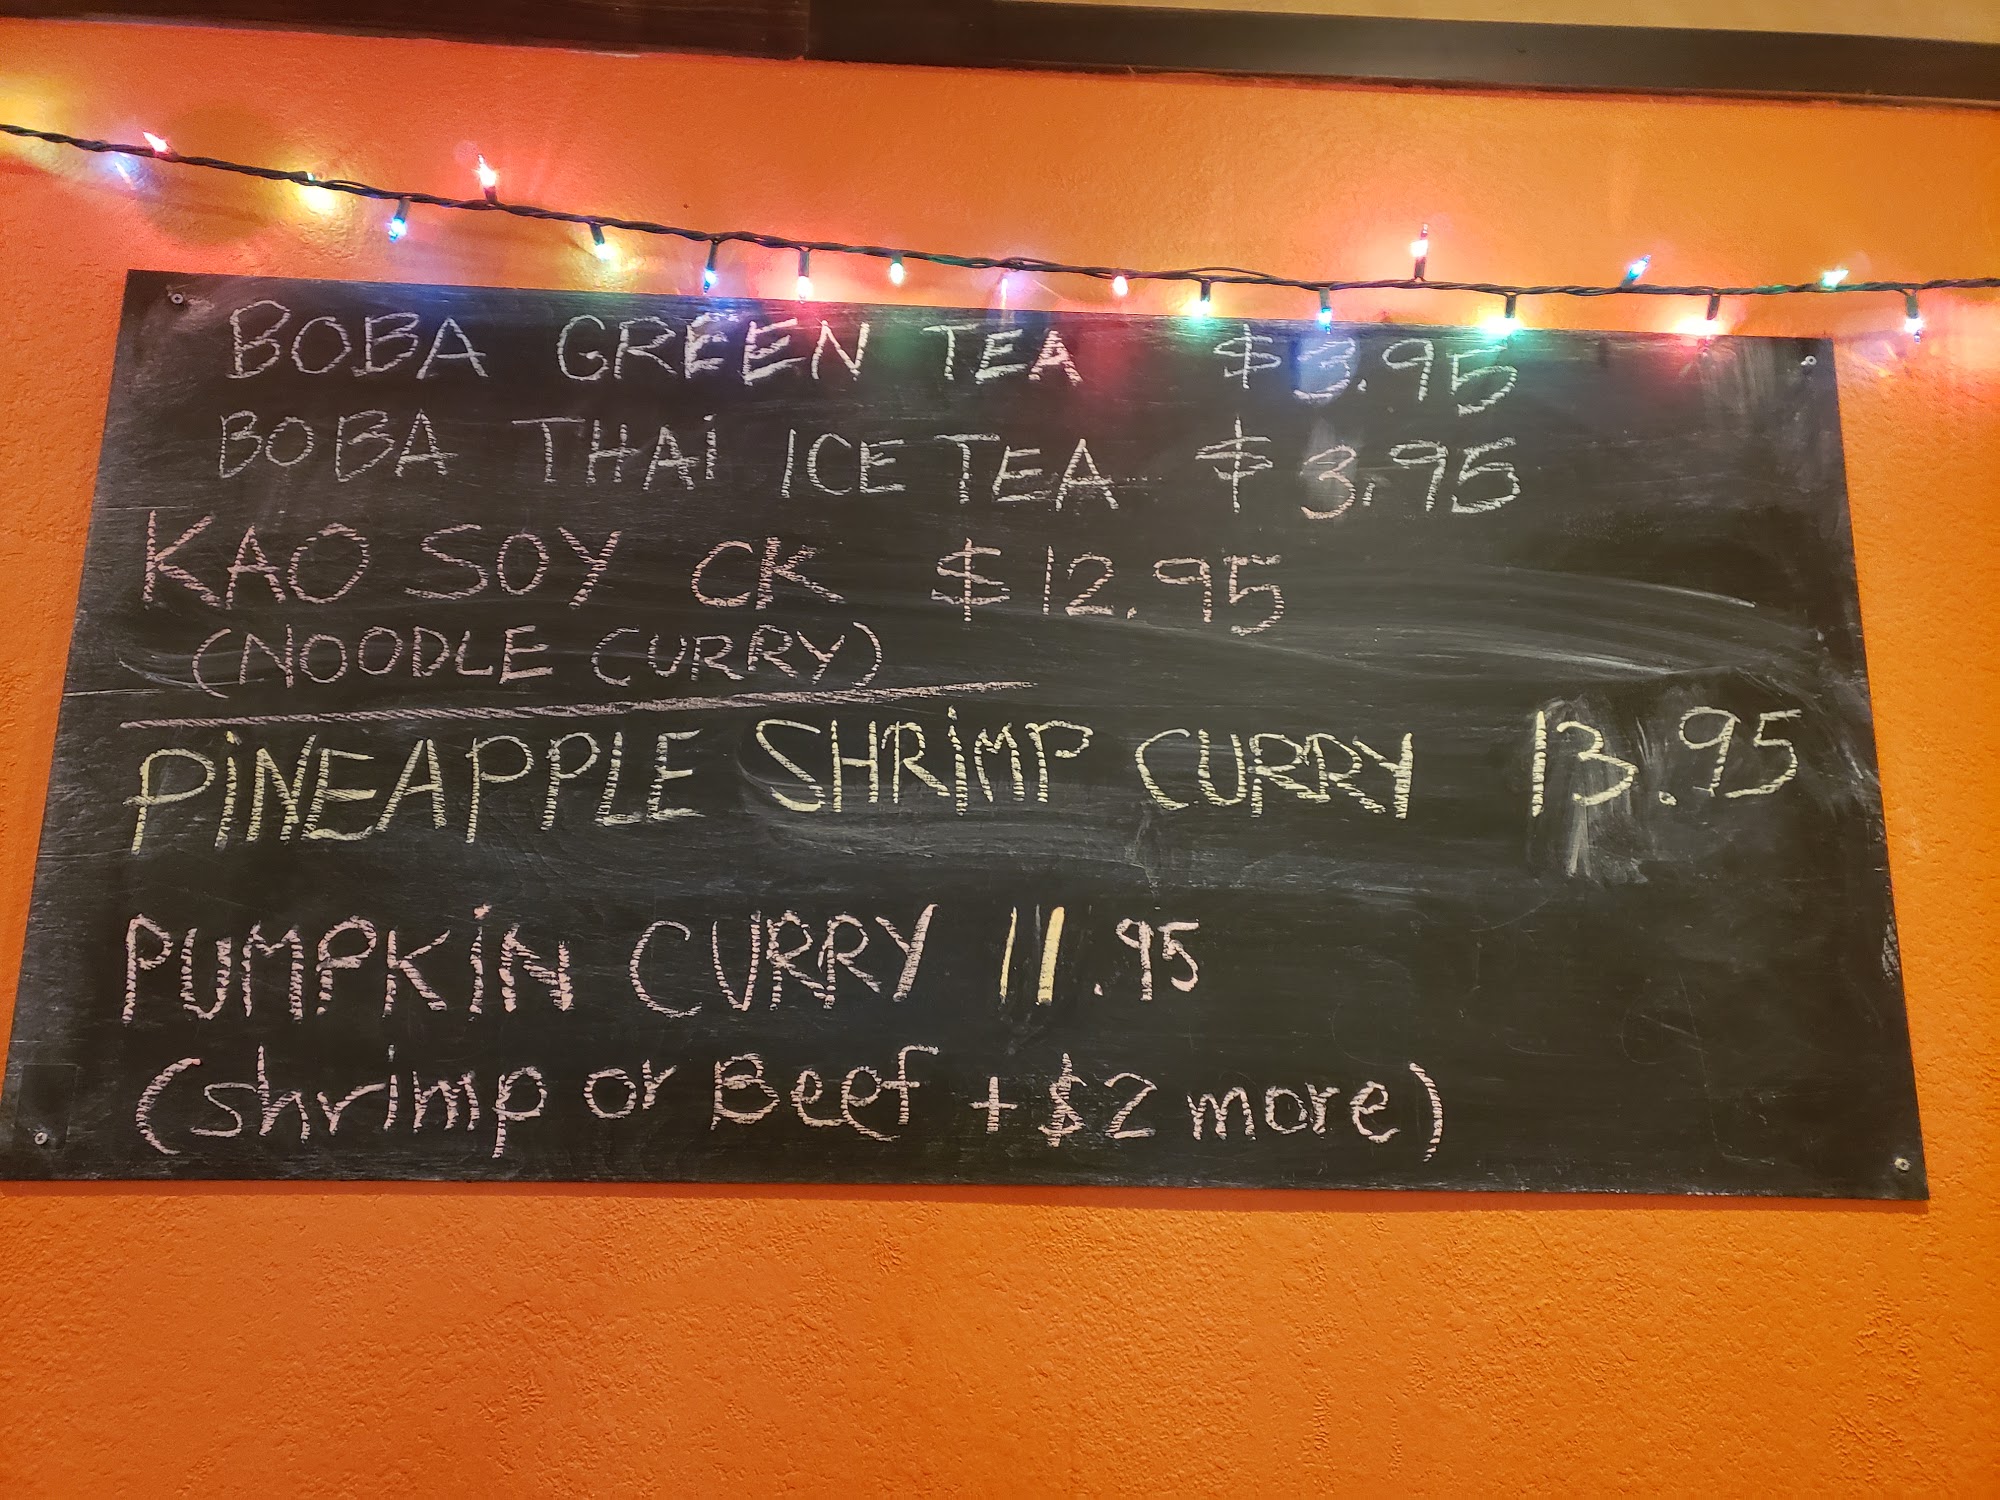 BOBA GREEN TEA $3.95
BOBA THAi ICE TEA $3.95
KAO SOY CK $12.95
(NOODLE CURRY)
PiNEAPPLE SHRiMP CURRY 13.95
PUMPKiN CURRY 11.95
(shrimp or Beef +$2 more)